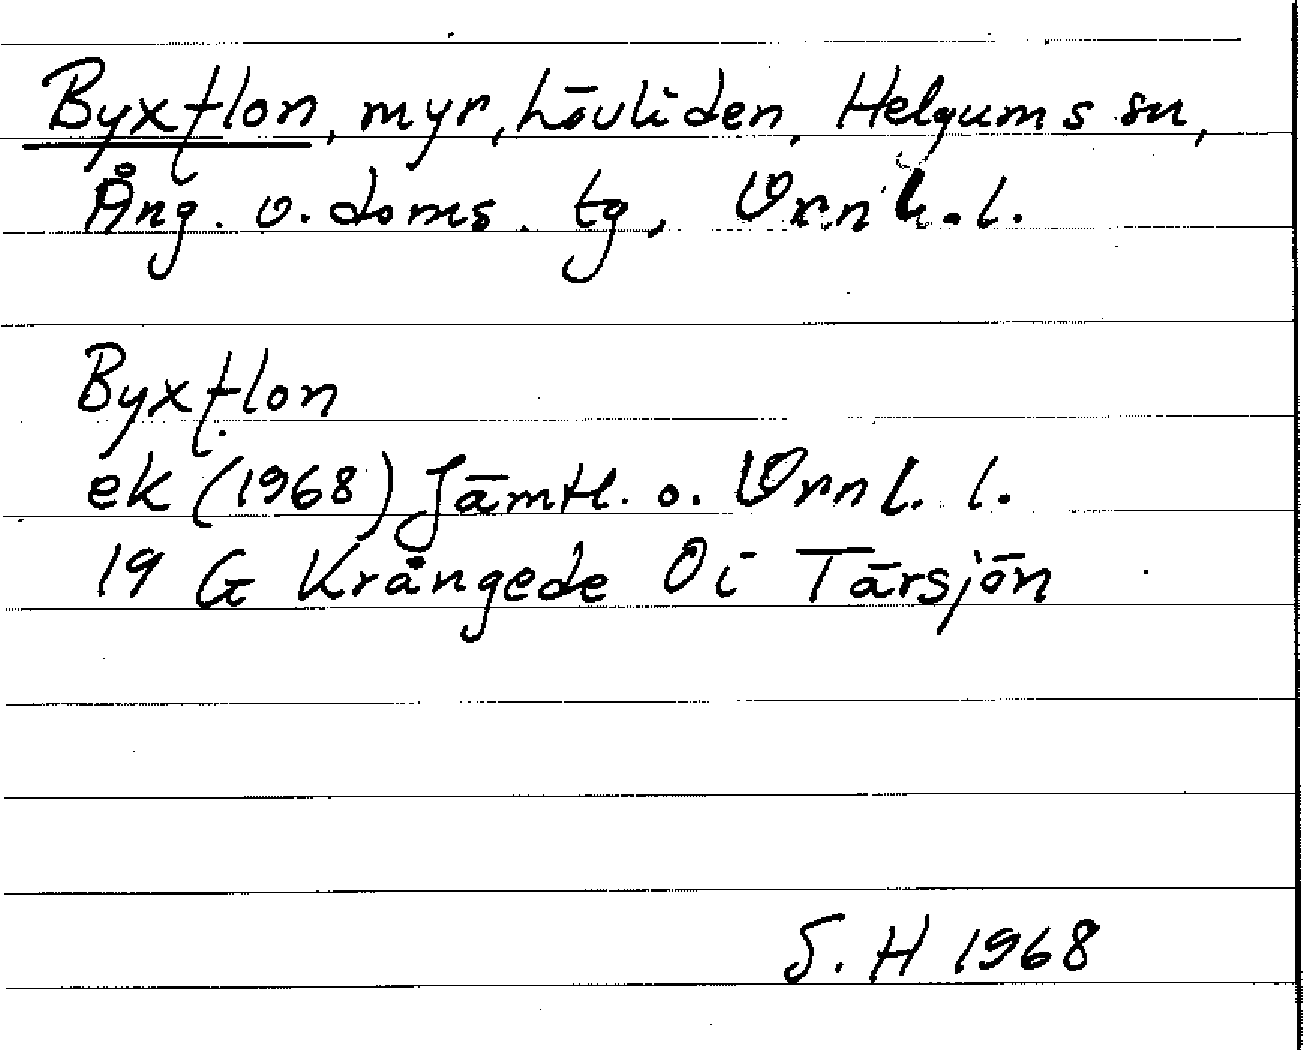 Byxflon, myr, Lövliden, Helgums sn,
Ång. v. doms. tg, Vrnl. l.
Byxflon
ek (1968) Jämtl. o. Vrnl. l.
19 G Krångede 0i Tärsjön
S. H 1968